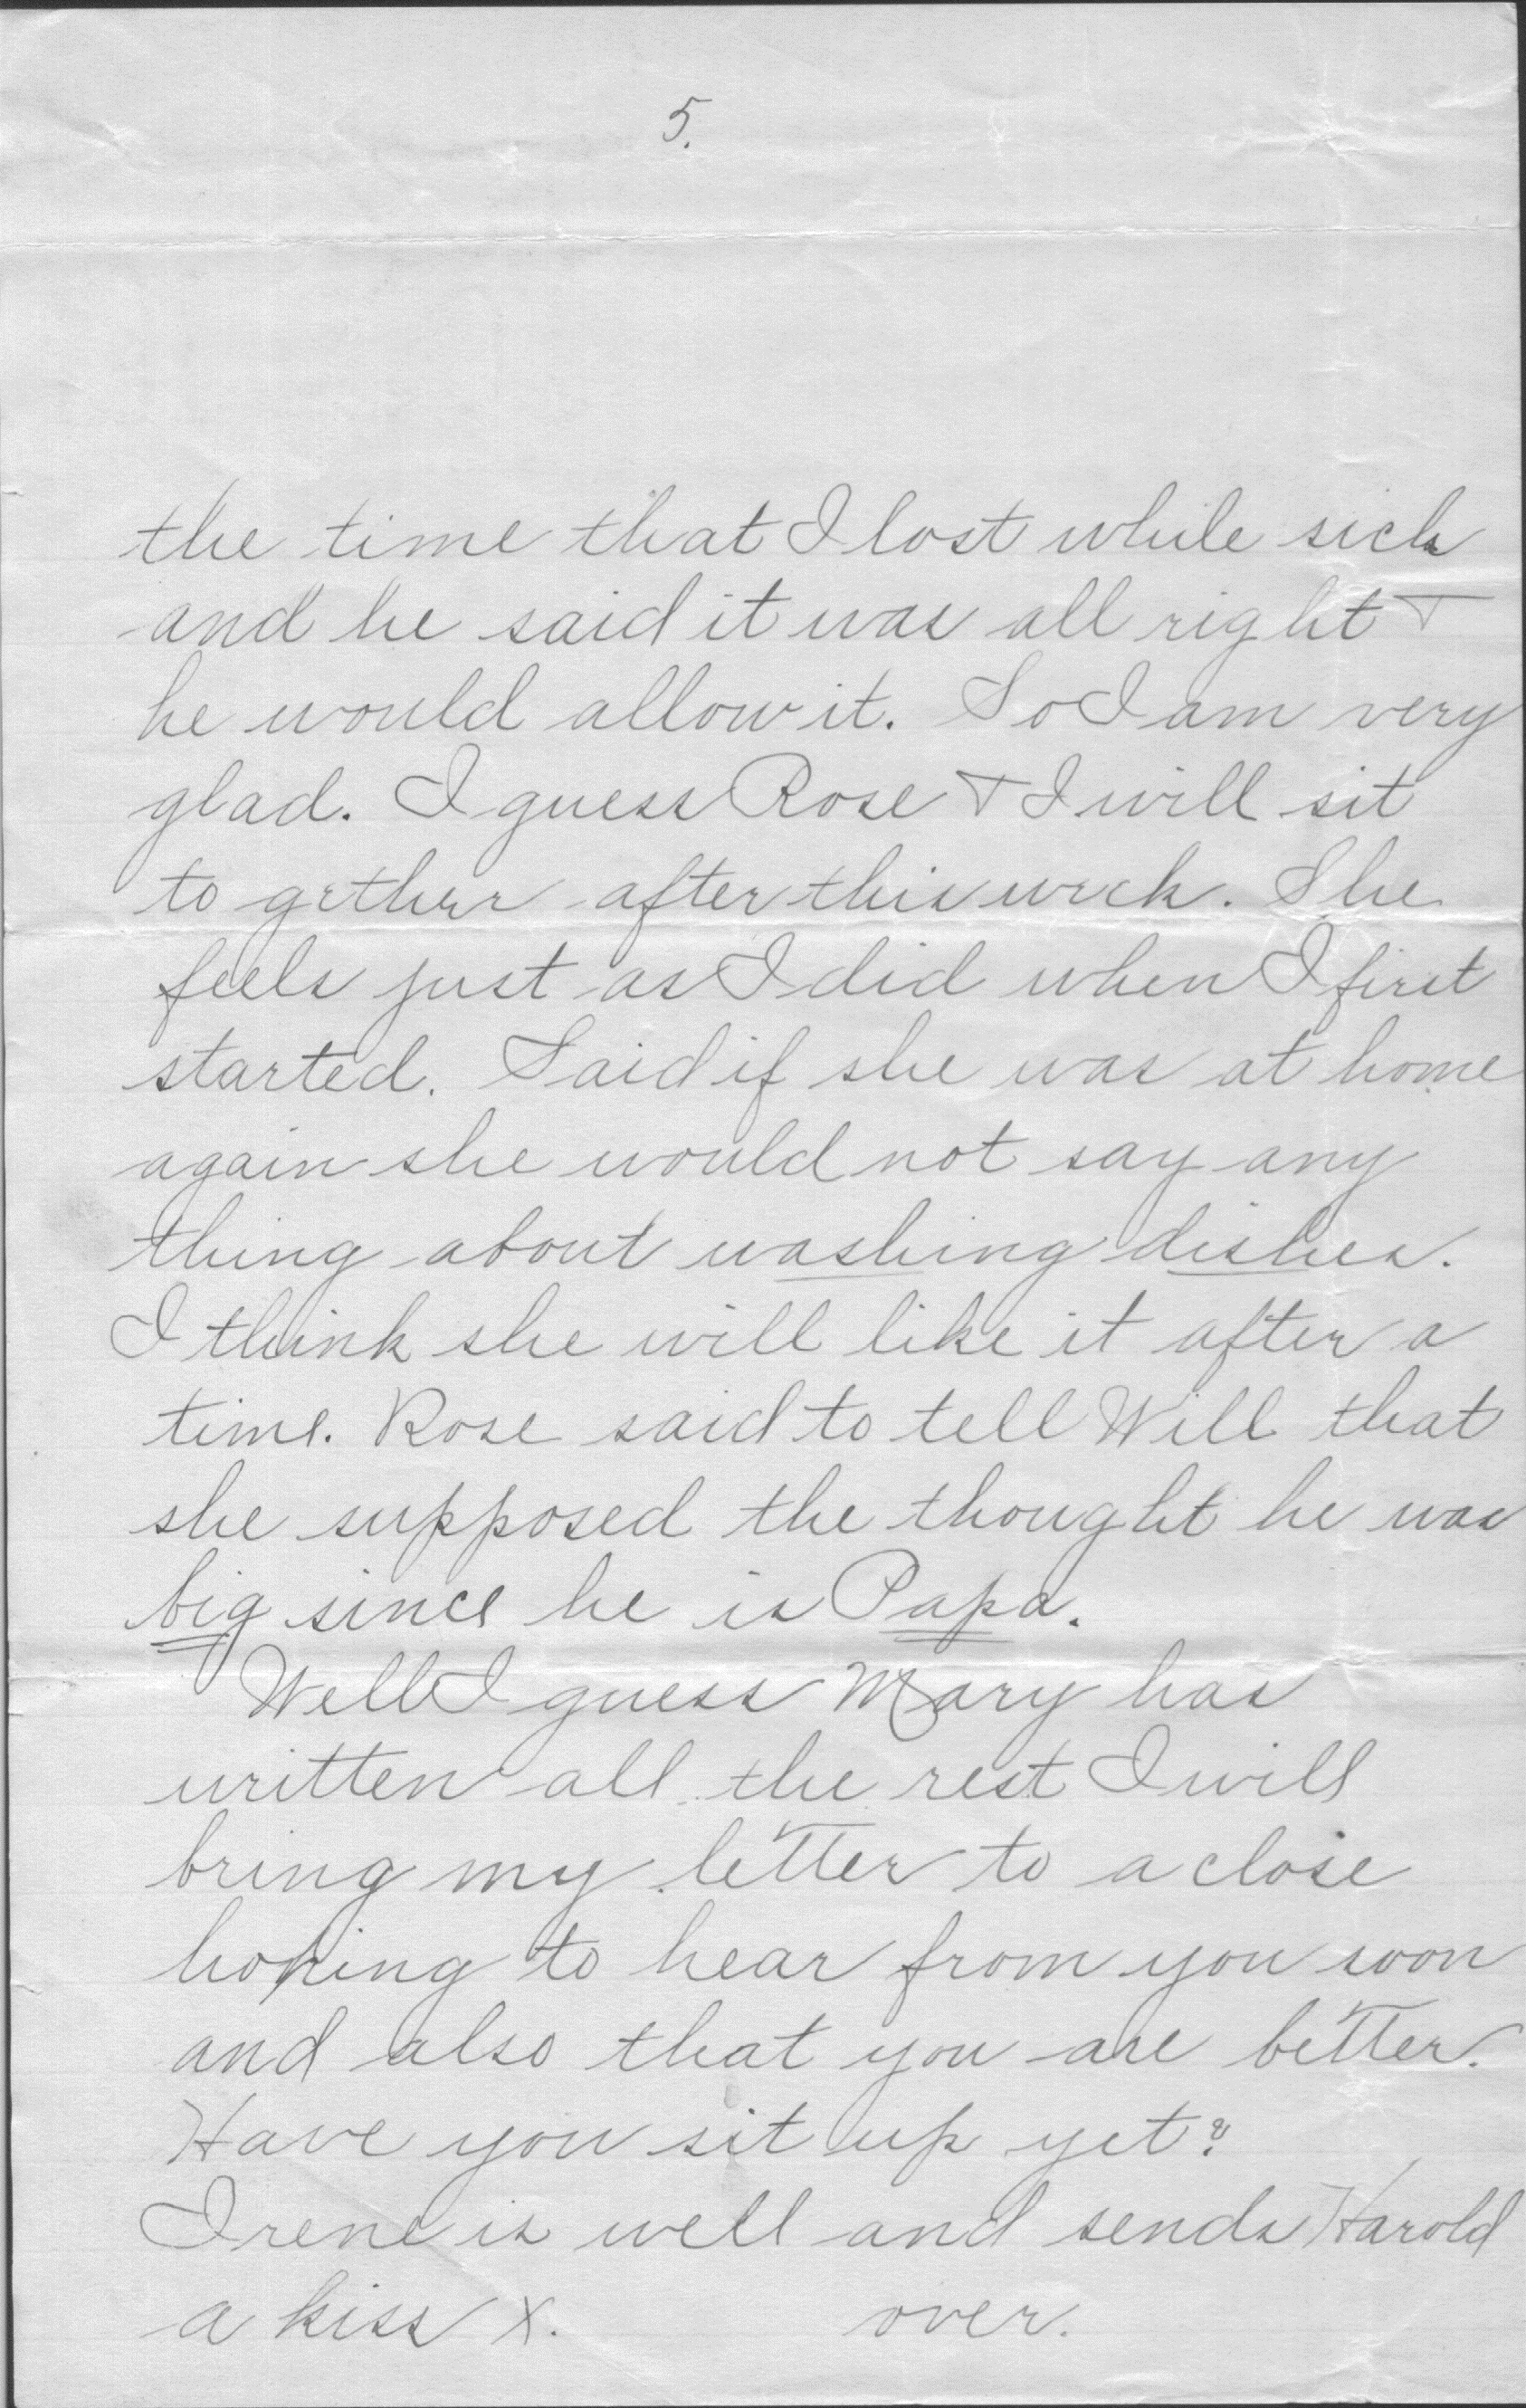 5.
the time that I lost while sick
and he said it was all right +
he would allow it. So I am very
glad. I guess Rose + I will sit
to gether after this week. She
feels just as I did when I first
started. Said if she was at home
again she would not say any
thing about washing dishes.
I think she will like it after a
time. Rose said to tell Will that
she supposed the thought he was
big since he is Papa.
Well I guess Mary has
written all the rest I will
bring my letter to a close
hoping to hear from you soon
and also that you are better.
Have you sit up yet?
Irene is well and sends Harold
a kiss X. over.